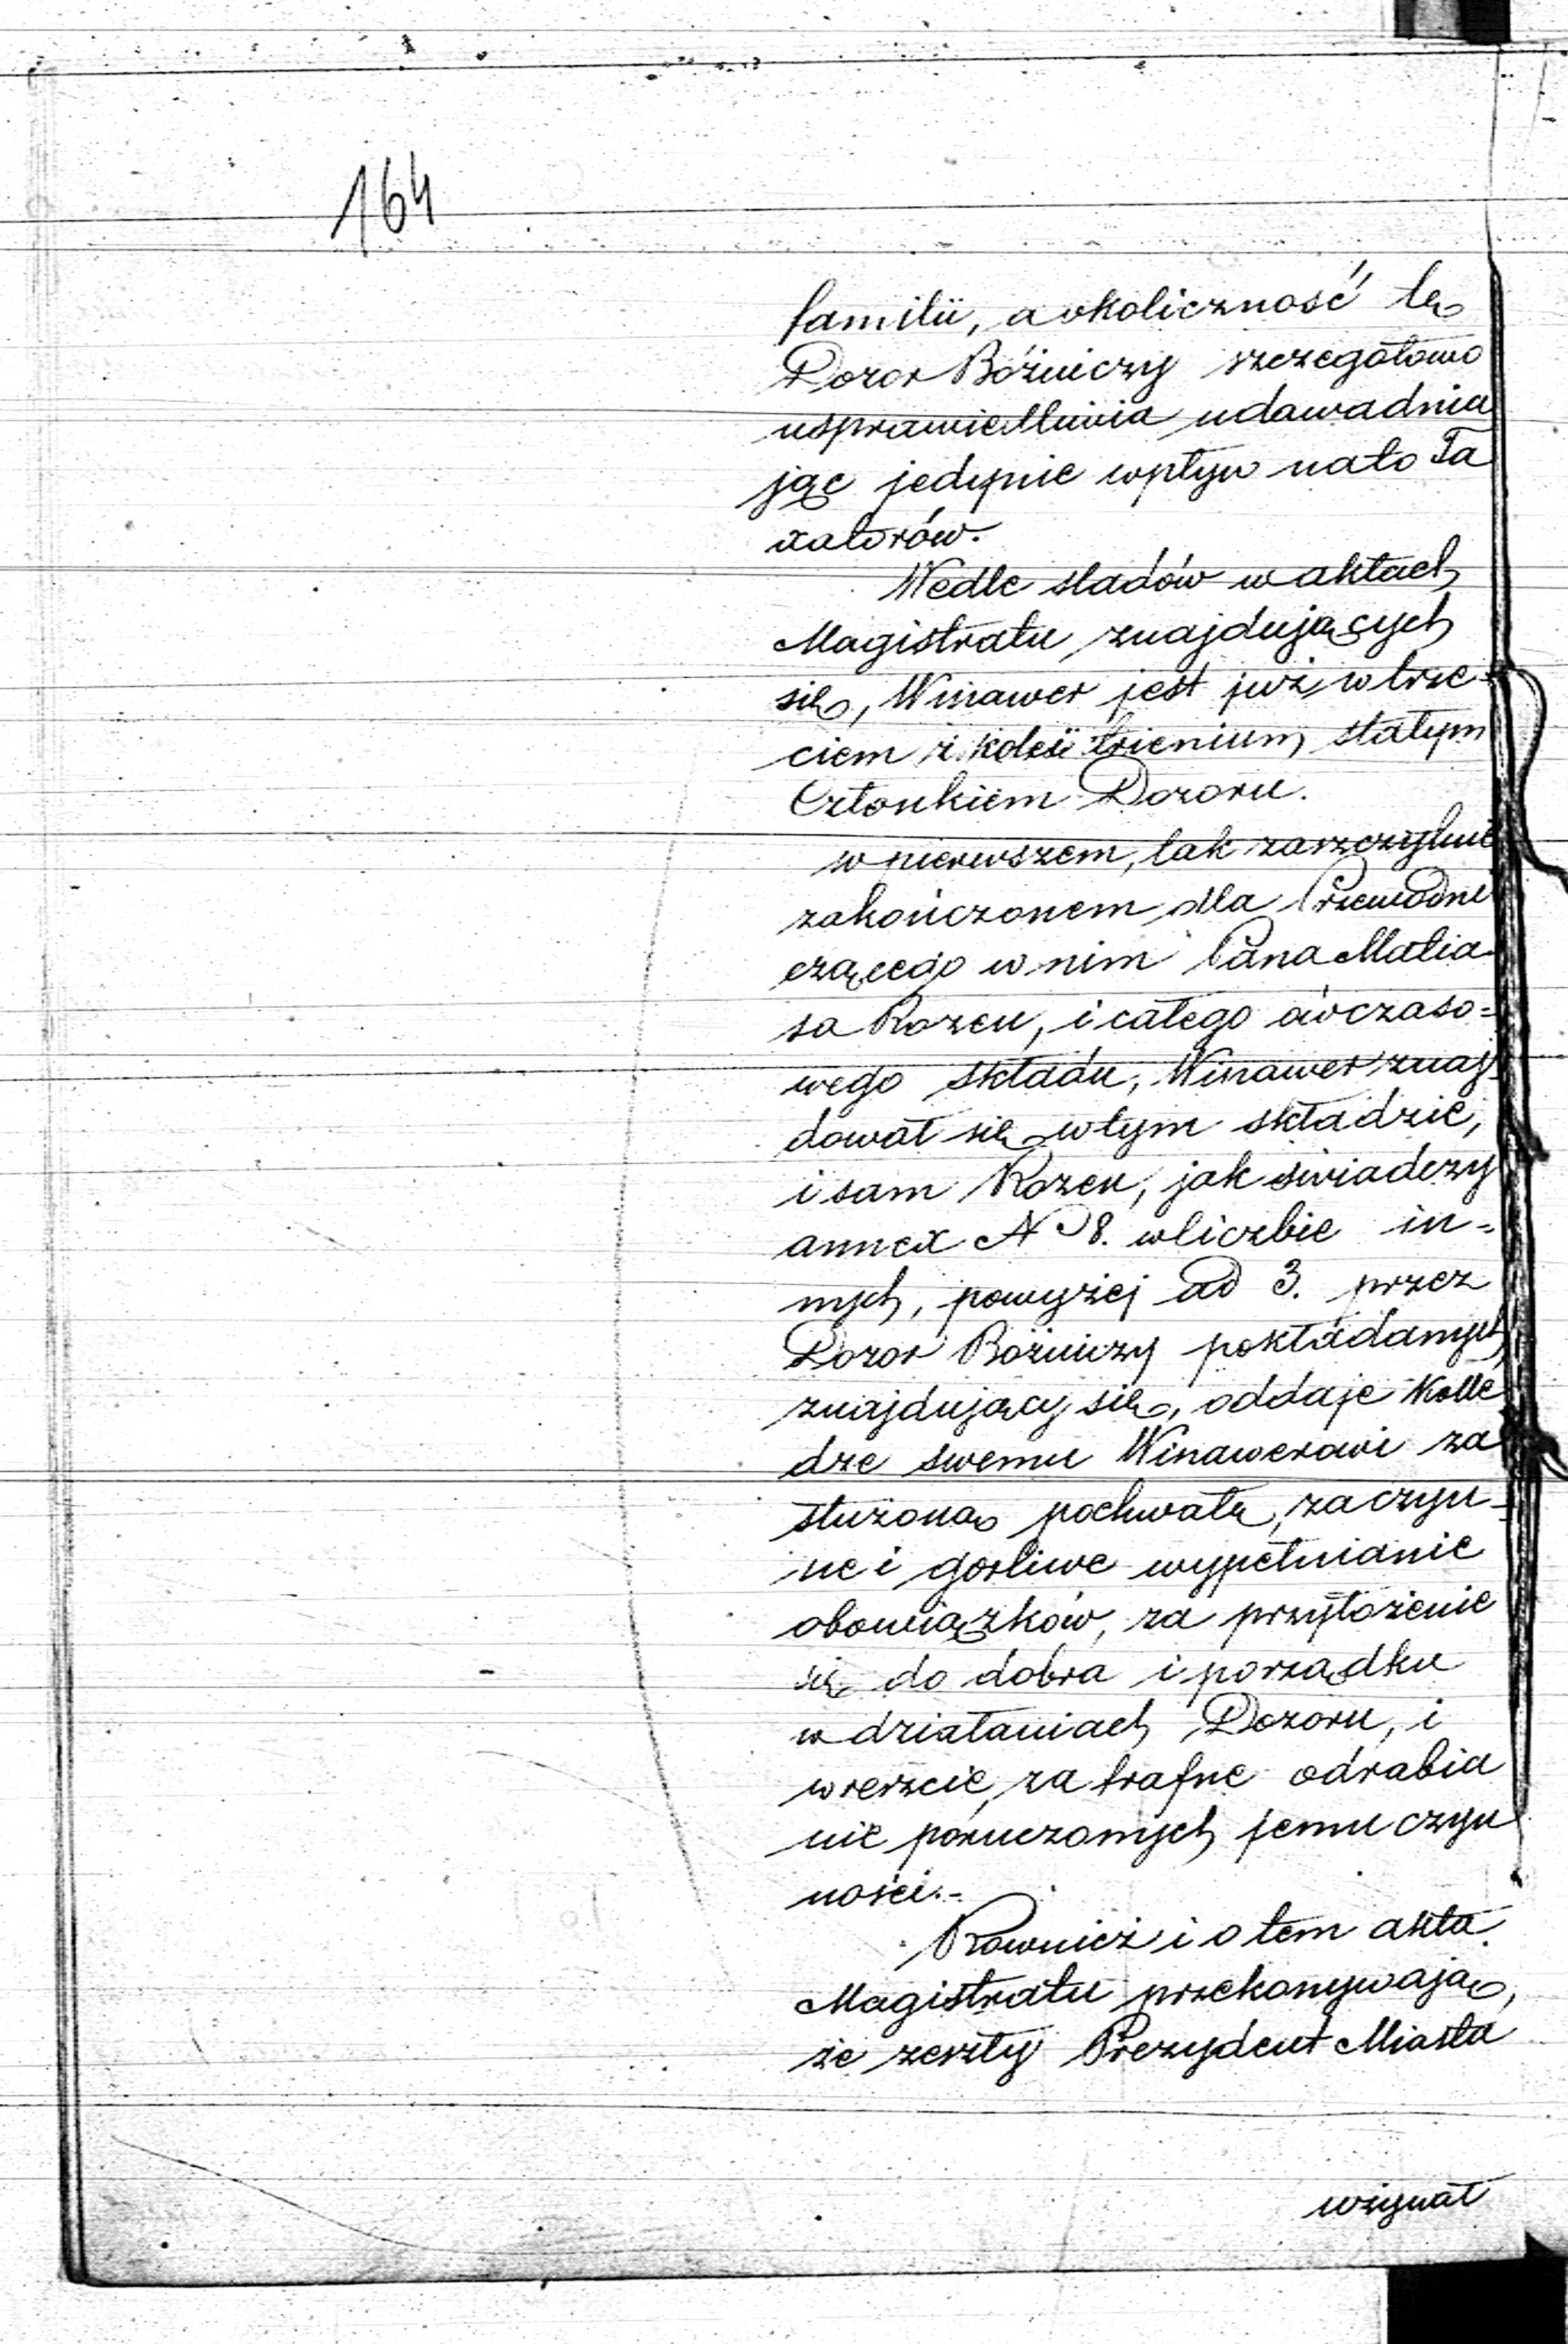 164
familii, a okoliczność tę
Dozor Bóżniczy szczegołowo
usprawiedliwia udawadnia
jąc jedynie wpływ na to Ta
xatorów.
Wedle sladów w aktach
Magistratu znajdujących
się, Winawer jest już w trze-
ciem z kolei trienium stałym
Członkiem Dozoru.
w pierwszem, tak zaszczytnie
zakończonem dla Przewodni
czącego w nim Pana Matia-
sa Rozen, i całego ówczaso=
wego składu, Winawer znaj
dował się w tym składzie,
i sam Rozen, jak świadczy
annex N 8. w liczbie in=
nych, powyżej ad 3. przez
Dozor Bóżniczy pokładanych,
znajdujący się, oddaje Kolle
dze swemu Winawerowi za
służoną pochwałę, za czyn-
ne i gorliwe wypełnianie
obowiązków, za przyłożenie
się do dobra i porządku
w działaniach Dozoru, i
wreszcie, za trafne odrabia
nie poruczonych jemu czyn
ności.-
Rownież i o tem akta
Magistratu przekonywają,
że zeszły Prezydent Miasta
wzywał